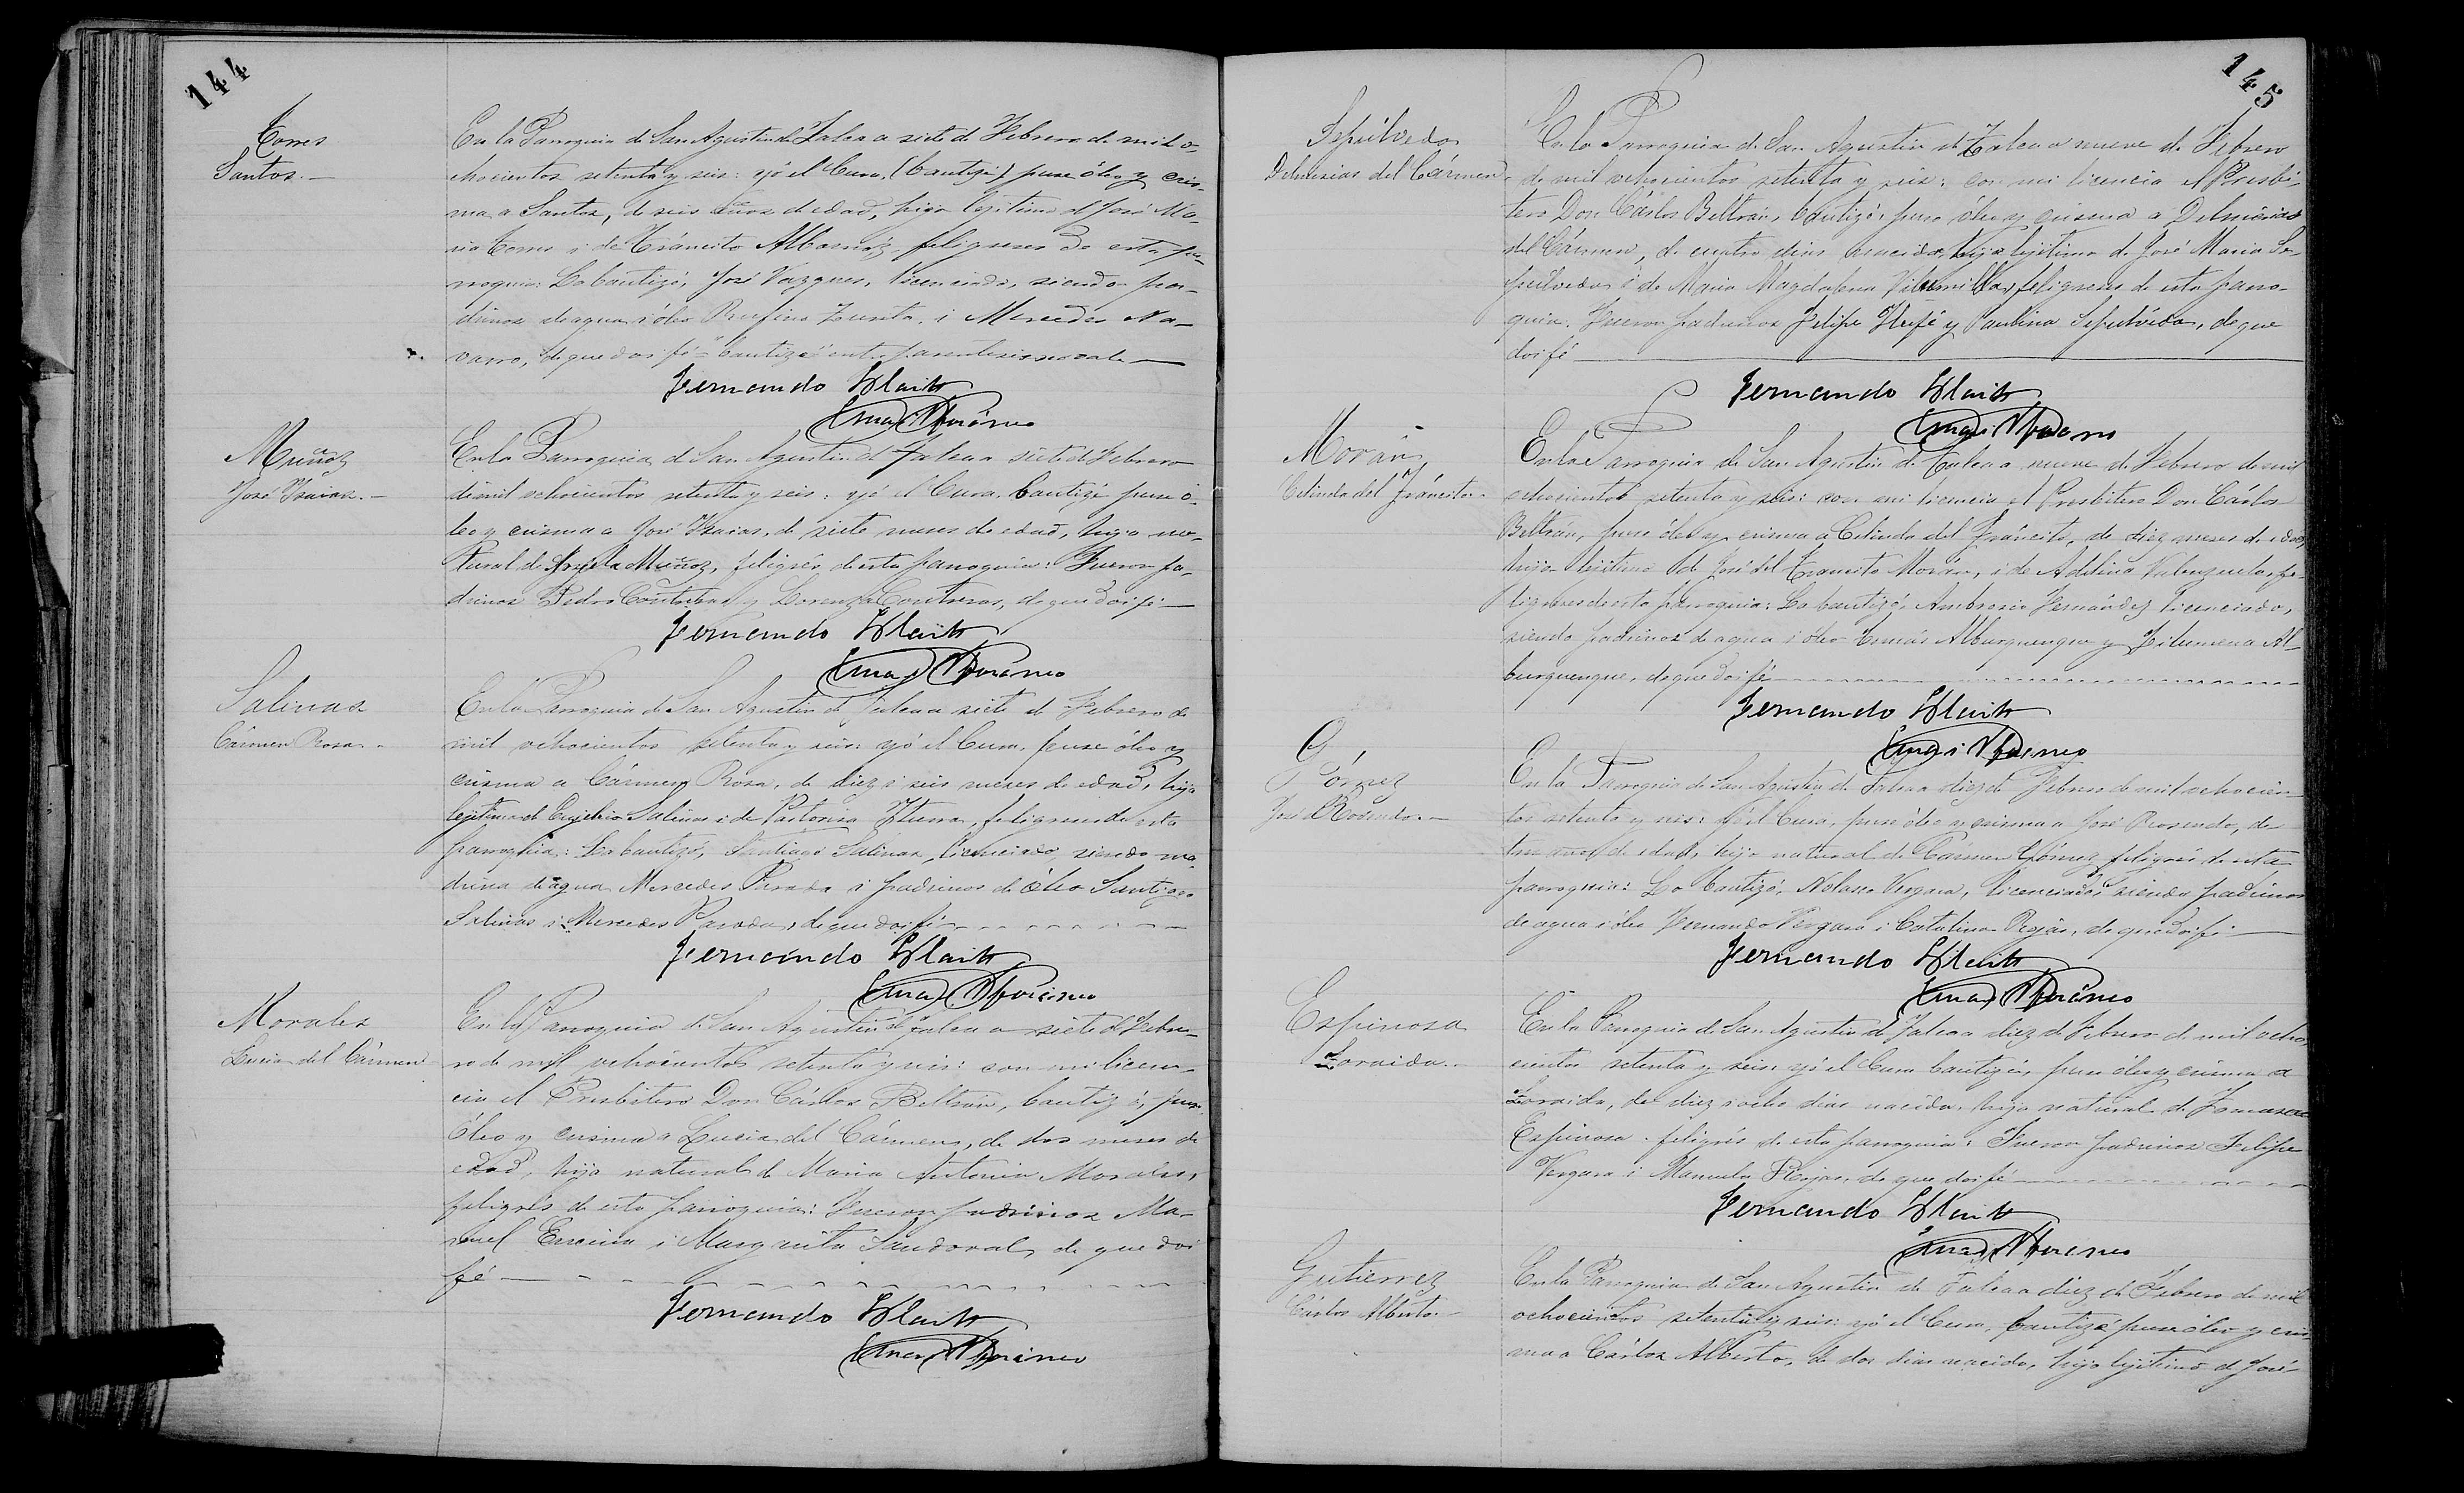 144
Torres
Santos.—
En la Parroquia de San Agustin de Talca a siete de Febrero de mil o-
chocientos setenta y seis: yó el Cura, (bautizé) puse óleo y cris-
ma a Santos, de seis años de edad, hijo lejitimo de José Ma-
ria Torres i de Tránsito Albornóz, feligreses de esta pa-
rroquia: Lo bautizó, José Vazques, licenciado, siendo pa-
drinos de agua i óleo Rufino Zurita i Mercedes Na-
varro, de que doi fé = "bautizé" entre parentesis no vale—
Fernando Blait
Cura i Vicario
Muñoz
José Isaias.—
En la Parroquia de San Agustin de Talca a siete de Febrero
de mil ochocientos setenta y seis: yó el Cura, bautizé puse ó-
leo y crisma a José Isaias, de siete meses de edad, hijo na-
tural de Muñoz, feligrés de esta parroquia: Fueron pa-
drinos Pedro Contreras y Lorenza Contreras, de que doi fé—
Fernando Blait
Cura i Vicario
Salinas
Cármen Rosa.—
En la Parroquia de San Agustin de Talca a siete de Febrero de
mil ochocientos setenta y seis: yó el Cura, puse óleo y
crisma a Cármen Rosa, de diez i seis meses de edad, hija
lejitima de Salinas i de Pastoriza feligreses de esta
parroquia: La bautizó, Santiago Salinas, licenciado, siendo ma-
drina de agua Mercedes Parada i padrinos de óleo Santiago
Salinas i Mercedes Parada, de que doi fé
Fernando Blait
Cura i Vicario
Morales
Lucia del Cármen
En la Parroquia de San Agustin de Talca a siete de Febre-
ro de mil ochocientos setenta y seis: con mi licen-
cia el Presbitero Don Cárlos Beltrán, bautizó, puso
óleo y crisma a Lucia del Cármen, de dos meses de
edad, hija natural de Maria Antonia Morales,
feligrés de esta parroquia: Fueron padrinos Ma-
nuel Encina i Margarita Sandoval, de que doi
fé—
Fernando Blait
Cura i Vicario
145
Sepúlveda
Delmirias del Cármen
En la Parroquia de San Agustin de Talca a nueve de Febrero
de mil ochocientos setenta y seis: con mi licencia el Presbi-
tero Don Cárlos Beltrán, bautizó, puso óleo y crisma a Delmirias
del Cármen, de cuatro dias nacida, hija lejitima de José Maria Se-
púlveda i de Maria Magdalena feligreses de esta parro-
quia: Fueron padrinos Felipe y Paulina Sepúlveda, de que
doi fé
Fernando Blait
Cura i Vicario
Morán
Celinda del Tránsito.
En la Parroquia de San Agustin de Talca a nueve de Febrero de mil
ochocientos setenta y seis: con mi licencia el Presbitero Don Cárlos
Beltrán, puso óleo y crisma a Celinda del Tránsito, de diez meses de edad,
hija lejitima de José del Tránsito Morán, i de Adelina Valenzuela, fe-
ligreses de esta parroquia: La bautizó, Ambrosio Fernández licenciado,
siendo padrinos de agua i óleo Tomás Alburquenque y Filumena Al-
burquenque, de que doi fé
Fernando Blait
Cura i Vicario
Gómez
José Rosendo.—
En la Parroquia de San Agustin de Talca a diez de Febrero de mil ochocien-
tos setenta y seis: yó el Cura, puse óleo y crisma a José Rosendo, de
tres años de edad, hijo natural de Cármen Gómez, feligrés de esta
parroquia: Lo bautizó, Nolasco Vergara, licenciado, siendo padrinos
de agua i óleo Fernando Vergara i Catalina Rojas, de que doi fé—
Fernando Blait
Cura i Vicario
Espinosa
Zoraida.—
En la Parroquia de San Agustin de Talca a diez de Febrero de mil ocho-
cientos setenta y seis: yó el Cura bautizé, puse óleo y crisma a
Zoraida, de diez i ocho dias nacida, hija natural de Tomasa
Espinosa, feligrés de esta parroquia: Fueron padrinos Felipe
Vergara i Manuela Rojas, de que doi fé
Fernando Blait
Cura i Vicario
Gutierrez
Cárlos Alberto.—
En la Parroquia de San Agustin de Talca a diez de Febrero de mil
ochocientos setenta y seis: yó el Cura, bautizé puse óleo y cris-
ma a Cárlos Alberto, de dos dias nacido, hijo lejitimo de José